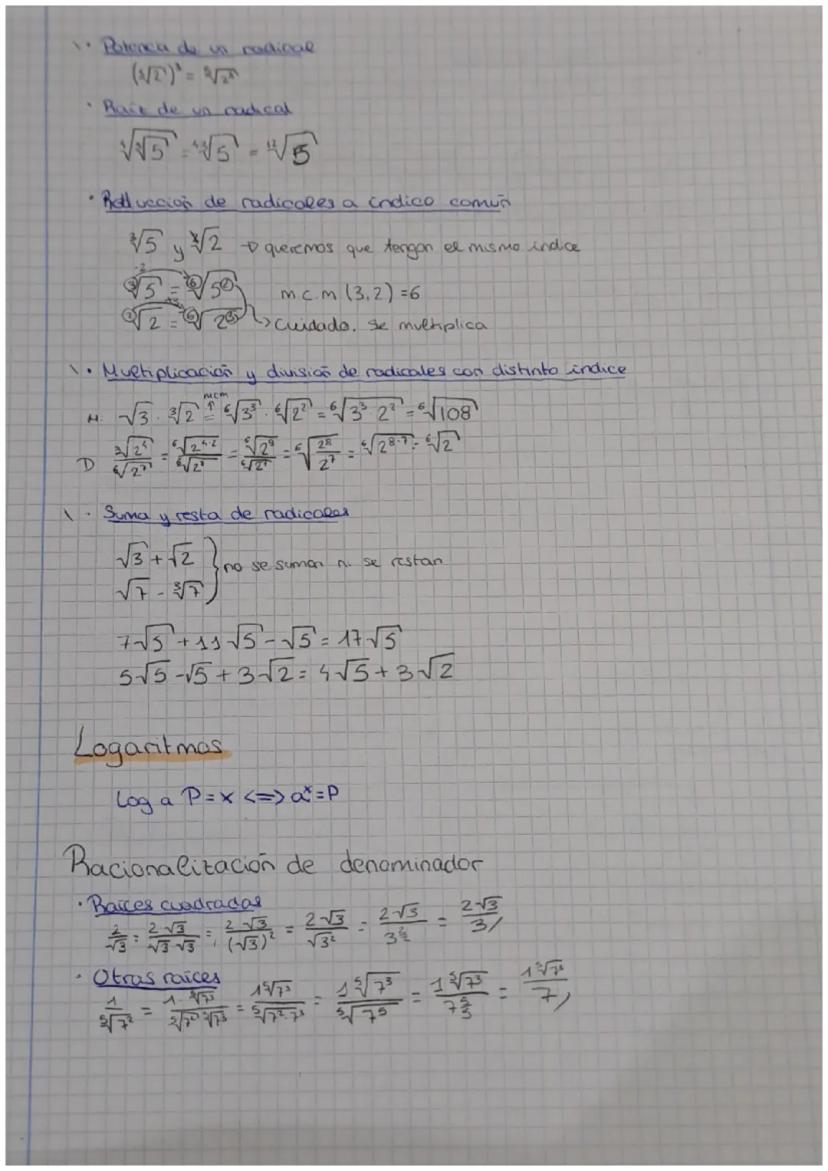 · Potencia de un radical
(∛2)³ = ∛2³
· Raíz de un radical
= ¹²√5
· Reducción de radicales a índice común
∛5 y √2 → queremos que tengan el mismo índice
∛5 = ⁶√5² m.c.m (3,2) = 6
√2 = ⁶√2³ → Cuidado, se multiplica
· Multiplicación y división de radicales con distinto índice
mcm
M: √3 · ∛2 = ⁶√3³ · ⁶√2² = ⁶√3³ 2² = ⁶√108
D ∛2⁴/⁶√2⁷ = ⁶√2⁴·²/⁶√2⁷ = ⁶√2⁸/⁶√2⁷ = ⁶√2⁸/2⁷ = ⁶√2⁸⁻⁷ = ⁶√2
· Suma y resta de radicales
√3 + √2
no se suman ni se restan
√7 - ∛7
7√5 + 11√5 - √5 = 17√5
5√5 - √5 + 3√2 = 4√5 + 3√2
Logaritmos
Log a P = x <=> aˣ = P
Racionalización de denominador
· Raíces cuadradas
2/√3 = 2·√3/√3·√3 = 2·√3/(√3)² = 2√3/√3² = 2√3/3^(2/2) = 2√3/3
· Otras raíces
1/⁵√7² = 1·⁵√7³/⁵√7²·⁵√7³ = 1⁵√7³/⁵√7²·7³ = 1⁵√7³/⁵√7⁵ = 1⁵√7³/7^(5/5) = 1⁵√7³/7